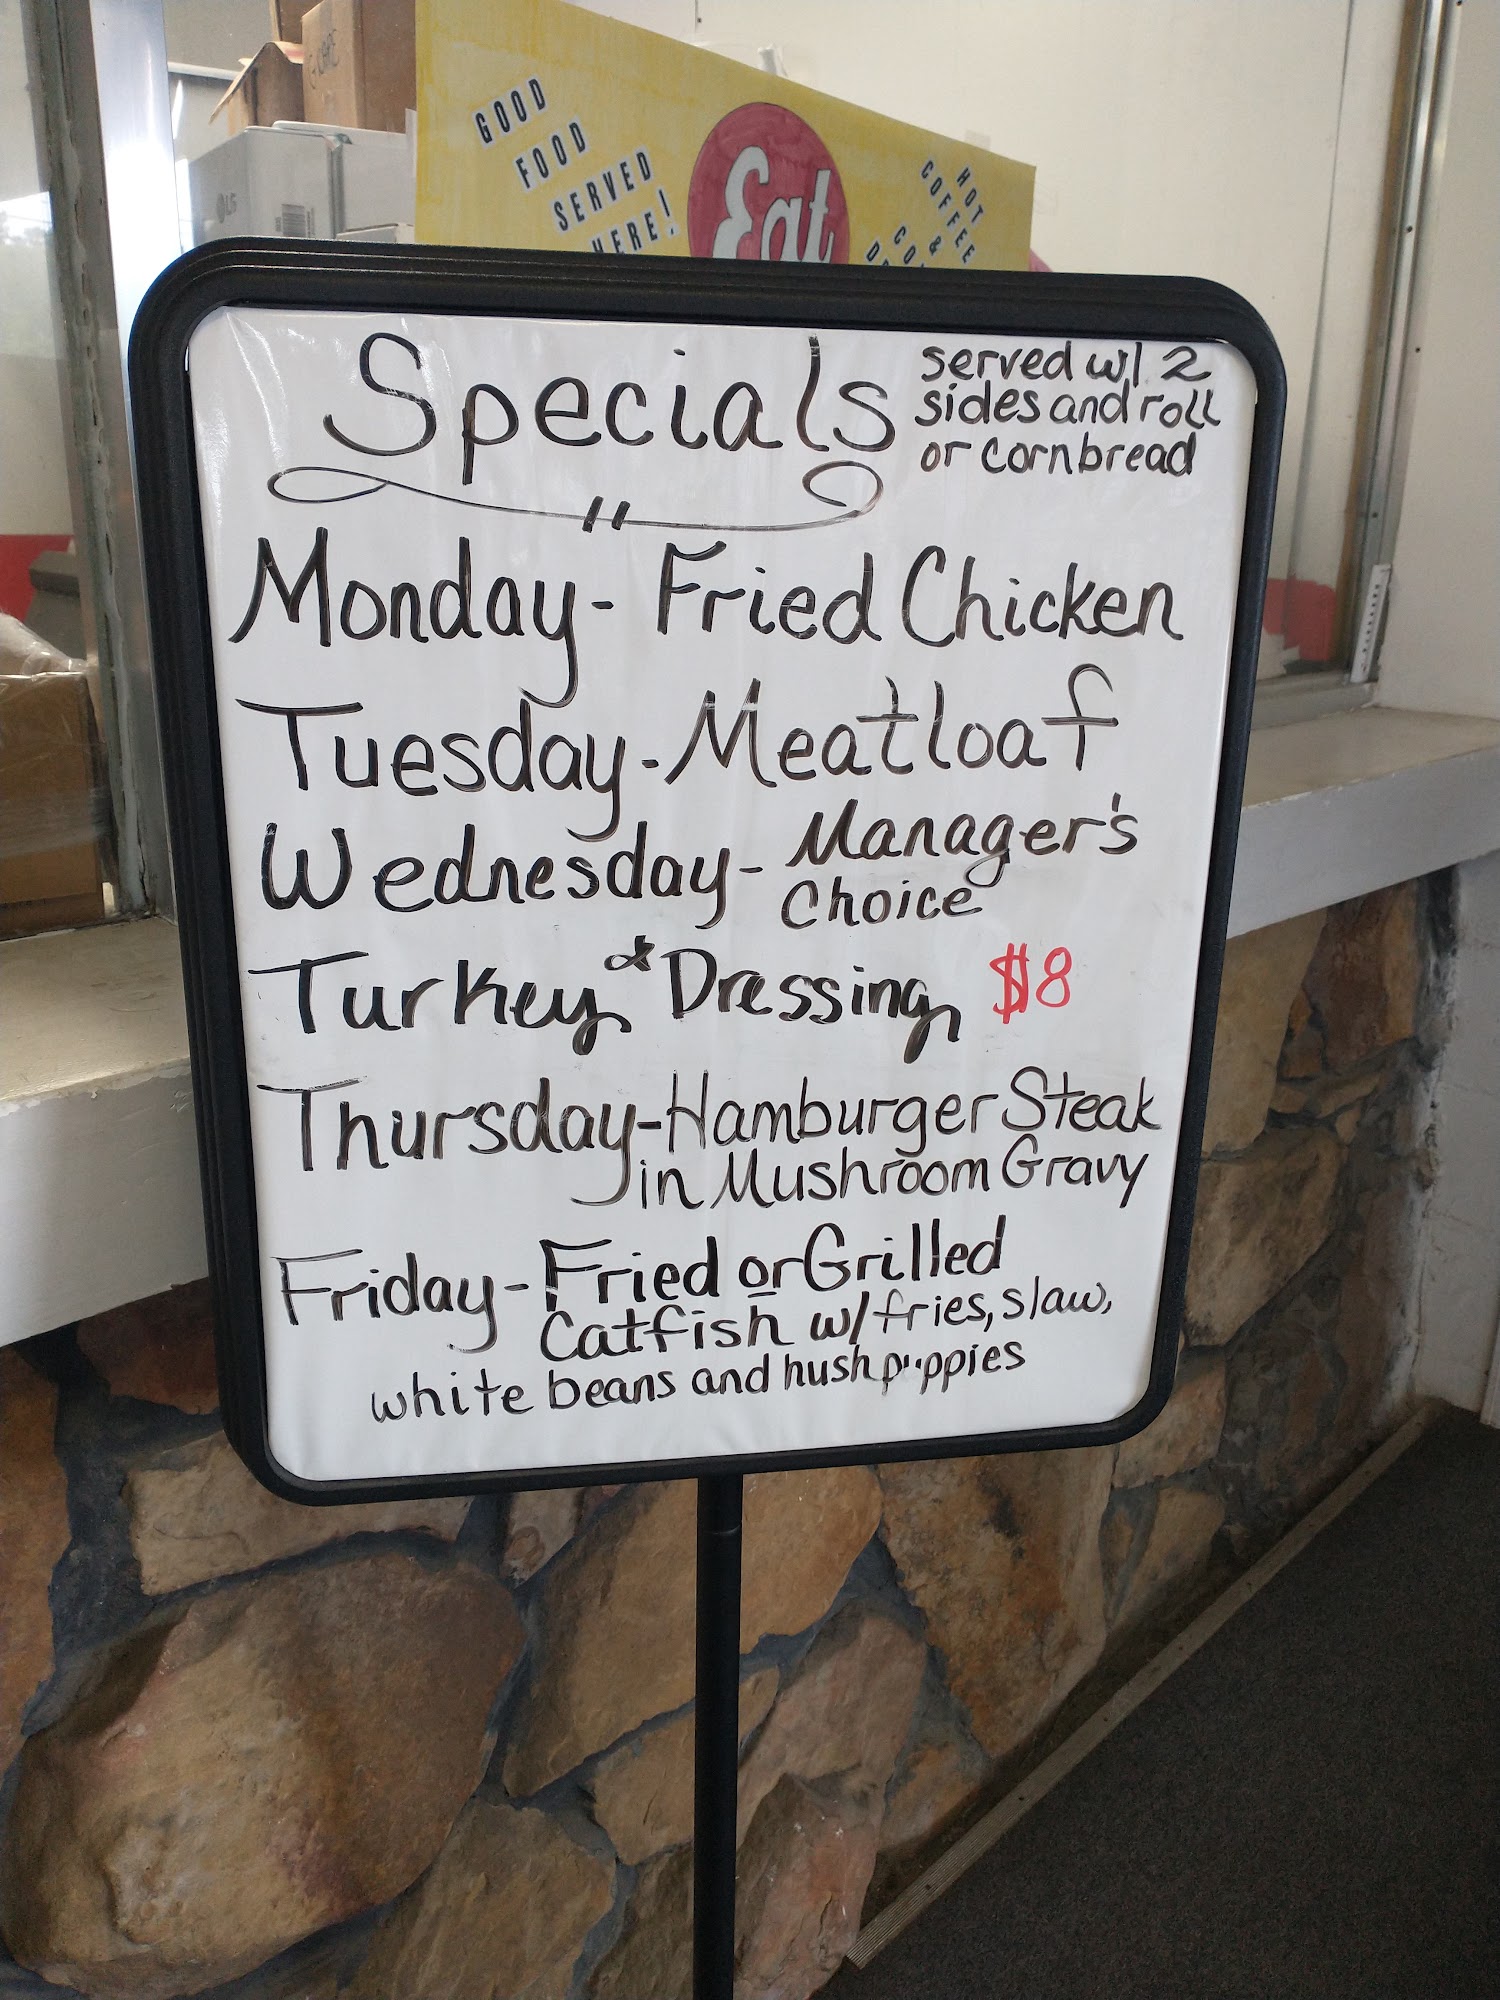 G CARE
LG
GOOD
FOOD
SERVED
HERE!
Eat
HOT
COFFEE
&
Specials
served w/ 2
sides and roll
or cornbread
Monday- Fried Chicken
Tuesday-Meatloaf
Wednesday- Manager's
Choice
Turkey & Dressing $8
Thursday-Hamburger Steak
in Mushroom Gravy
Friday-Fried or Grilled
Catfish w/fries, slaw,
white beans and hushpuppies